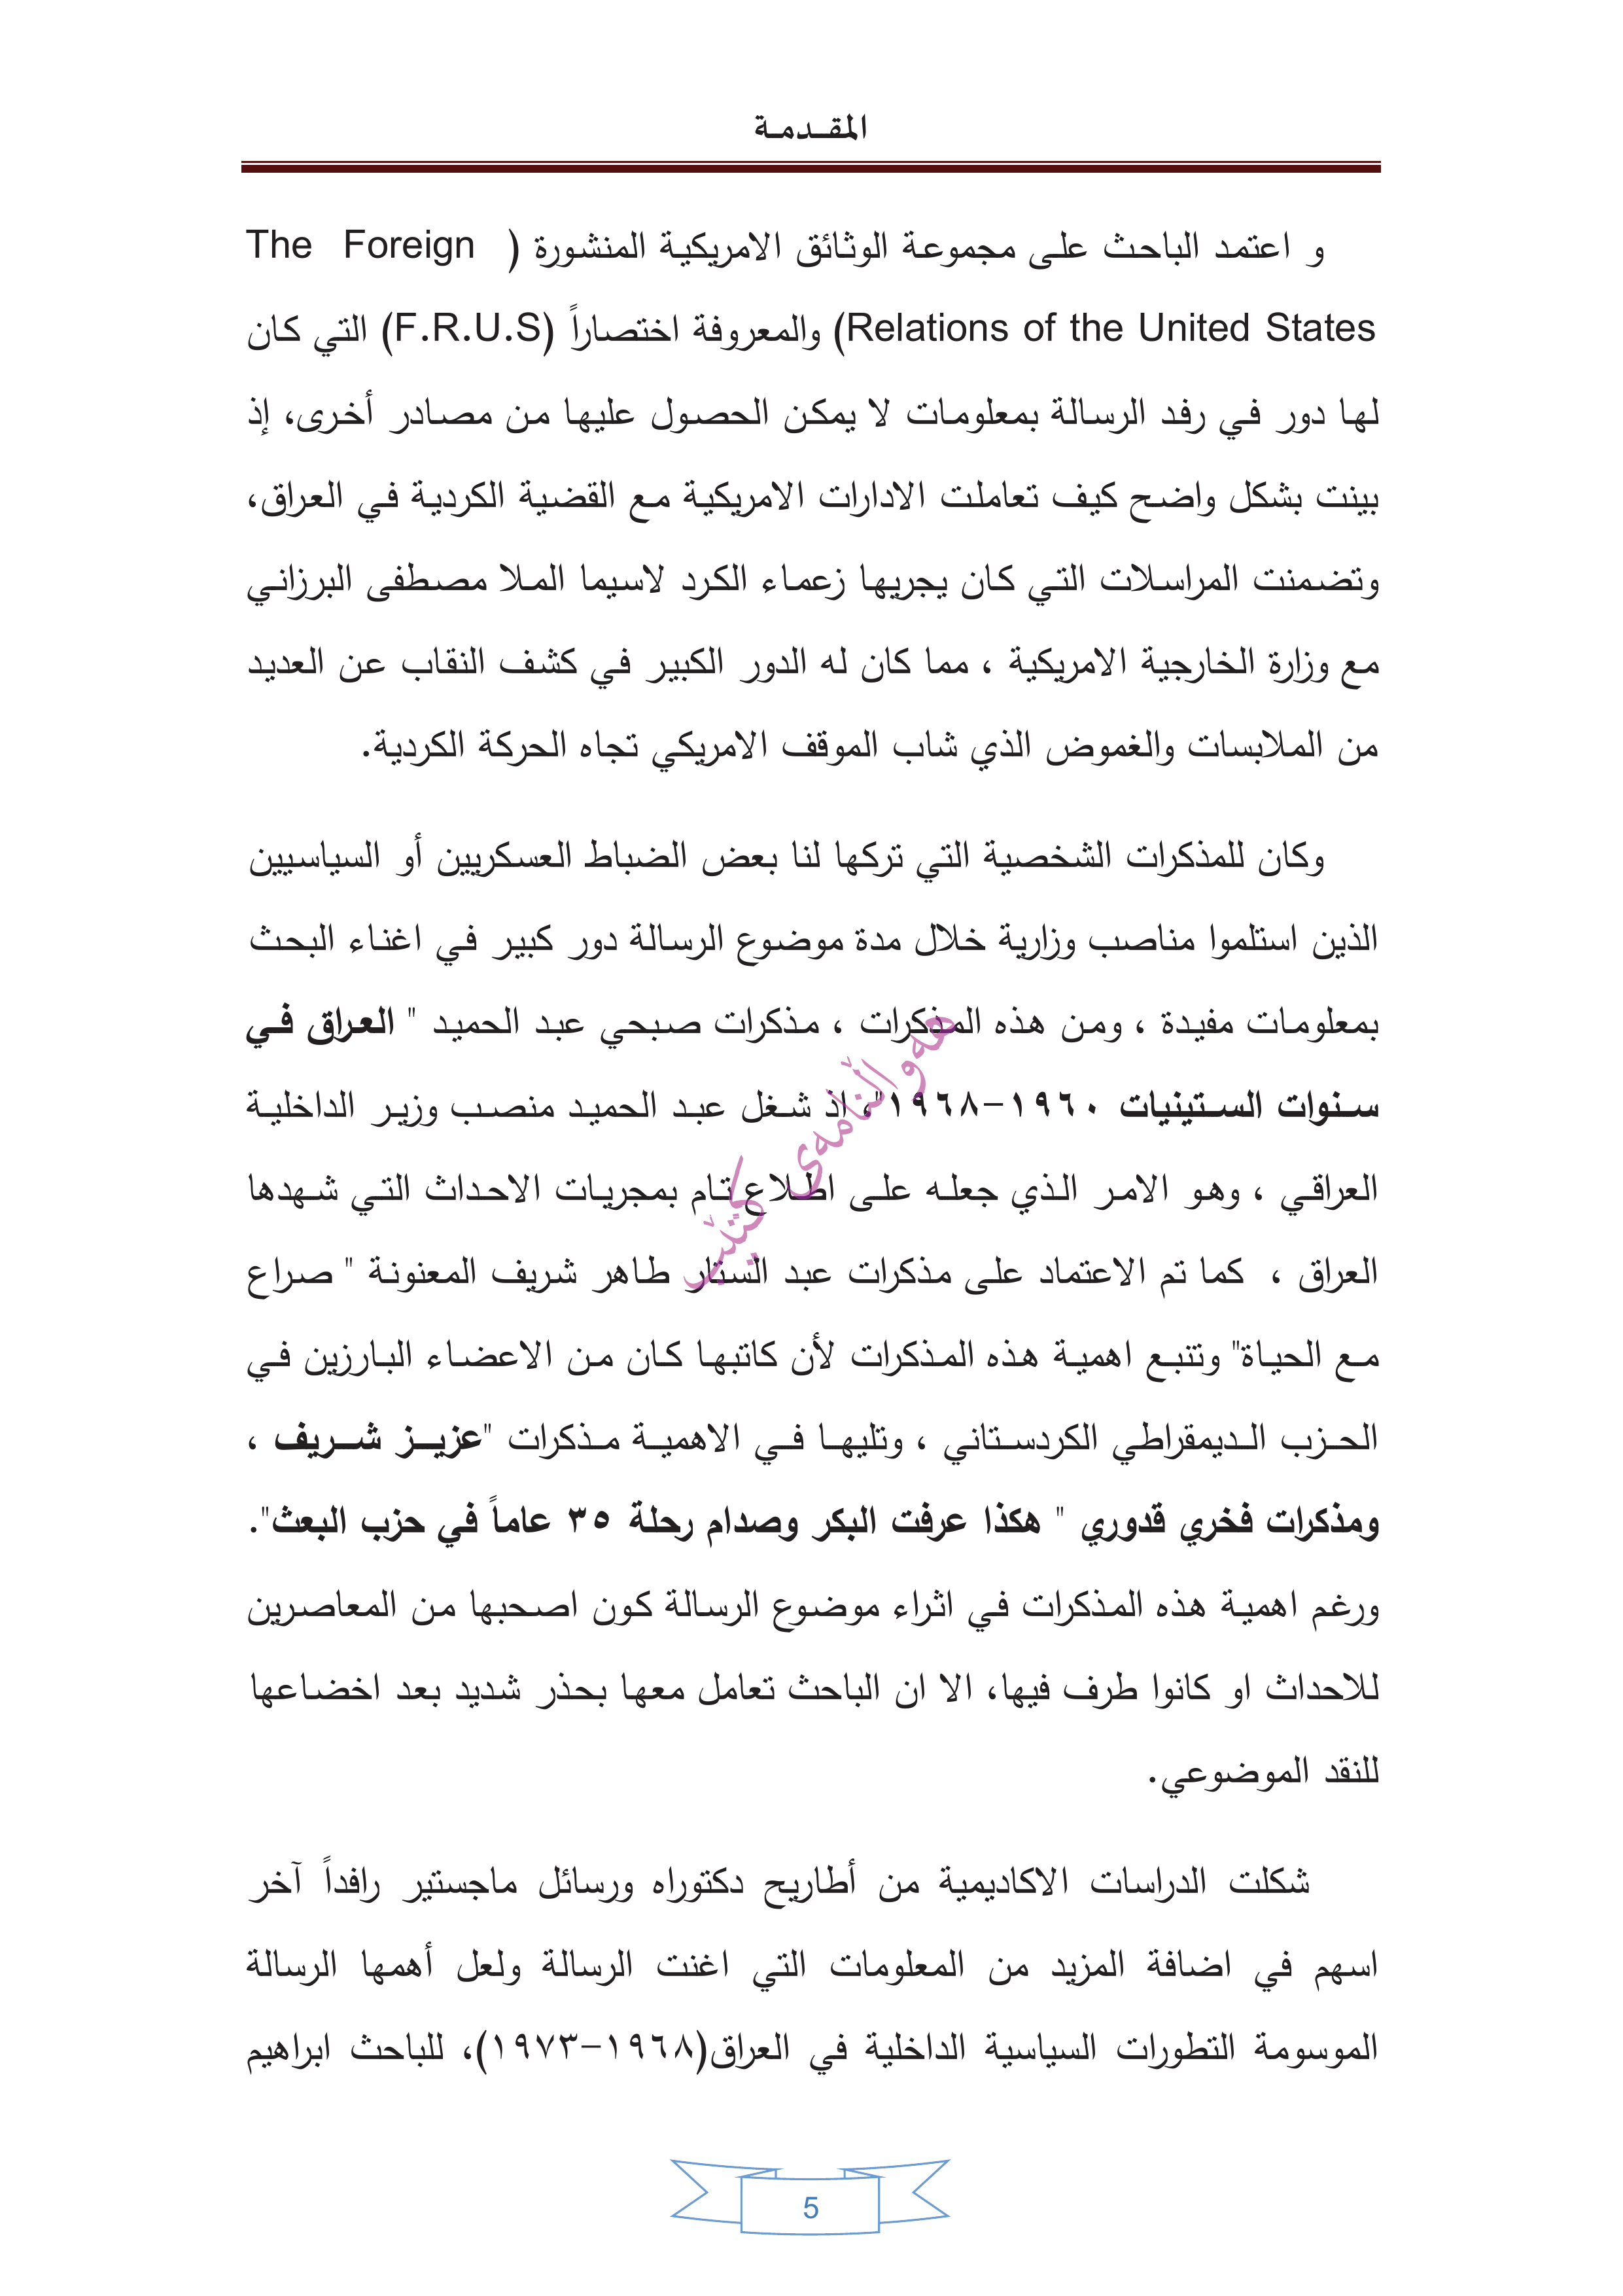 المقدمة
و اعتمد الباحث على مجموعة الوثائق الامريكية المنشورة ( The Foreign
Relations of the United States) والمعروفة اختصاراً (F.R.U.S) التي كان
لها دور في رفد الرسالة بمعلومات لا يمكن الحصول عليها من مصادر أخرى، إذ
بينت بشكل واضح كيف تعاملت الادارات الامريكية مع القضية الكردية في العراق،
وتضمنت المراسلات التي كان يجريها زعماء الكرد لاسيما الملا مصطفى البرزاني
مع وزارة الخارجية الامريكية ، مما كان له الدور الكبير في كشف النقاب عن العديد
من الملابسات والغموض الذي شاب الموقف الامريكي تجاه الحركة الكردية.
وكان للمذكرات الشخصية التي تركها لنا بعض الضباط العسكريين أو السياسيين
الذين استلموا مناصب وزارية خلال مدة موضوع الرسالة دور كبير في اغناء البحث
بمعلومات مفيدة ، ومن هذه المذكرات ، مذكرات صبحي عبد الحميد " العراق في
سنوات الستينيات ١٩٦٠-١٩٦٨"، اذ شغل عبد الحميد منصب وزير الداخلية
العراقي ، وهو الامر الذي جعله على اطلاع تام بمجريات الاحداث التي شهدها
العراق ، كما تم الاعتماد على مذكرات عبد الستار طاهر شريف المعنونة " صراع
مع الحياة" وتتبع اهمية هذه المذكرات لأن كاتبها كان من الاعضاء البارزين في
الحزب الديمقراطي الكردستاني ، وتليها في الاهمية مذكرات "عزيز شريف ،
ومذكرات فخري قدوري " هكذا عرفت البكر وصدام رحلة ٣٥ عاماً في حزب البعث".
ورغم اهمية هذه المذكرات في اثراء موضوع الرسالة كون اصحبها من المعاصرين
للاحداث او كانوا طرف فيها، الا ان الباحث تعامل معها بحذر شديد بعد اخضاعها
للنقد الموضوعي.
شكلت الدراسات الاكاديمية من أطاريح دكتوراه ورسائل ماجستير رافداً آخر
اسهم في اضافة المزيد من المعلومات التي اغنت الرسالة ولعل أهمها الرسالة
الموسومة التطورات السياسية الداخلية في العراق(١٩٦٨-١٩٧٣)، للباحث ابراهيم
5
هەواڵنامەی کتێب